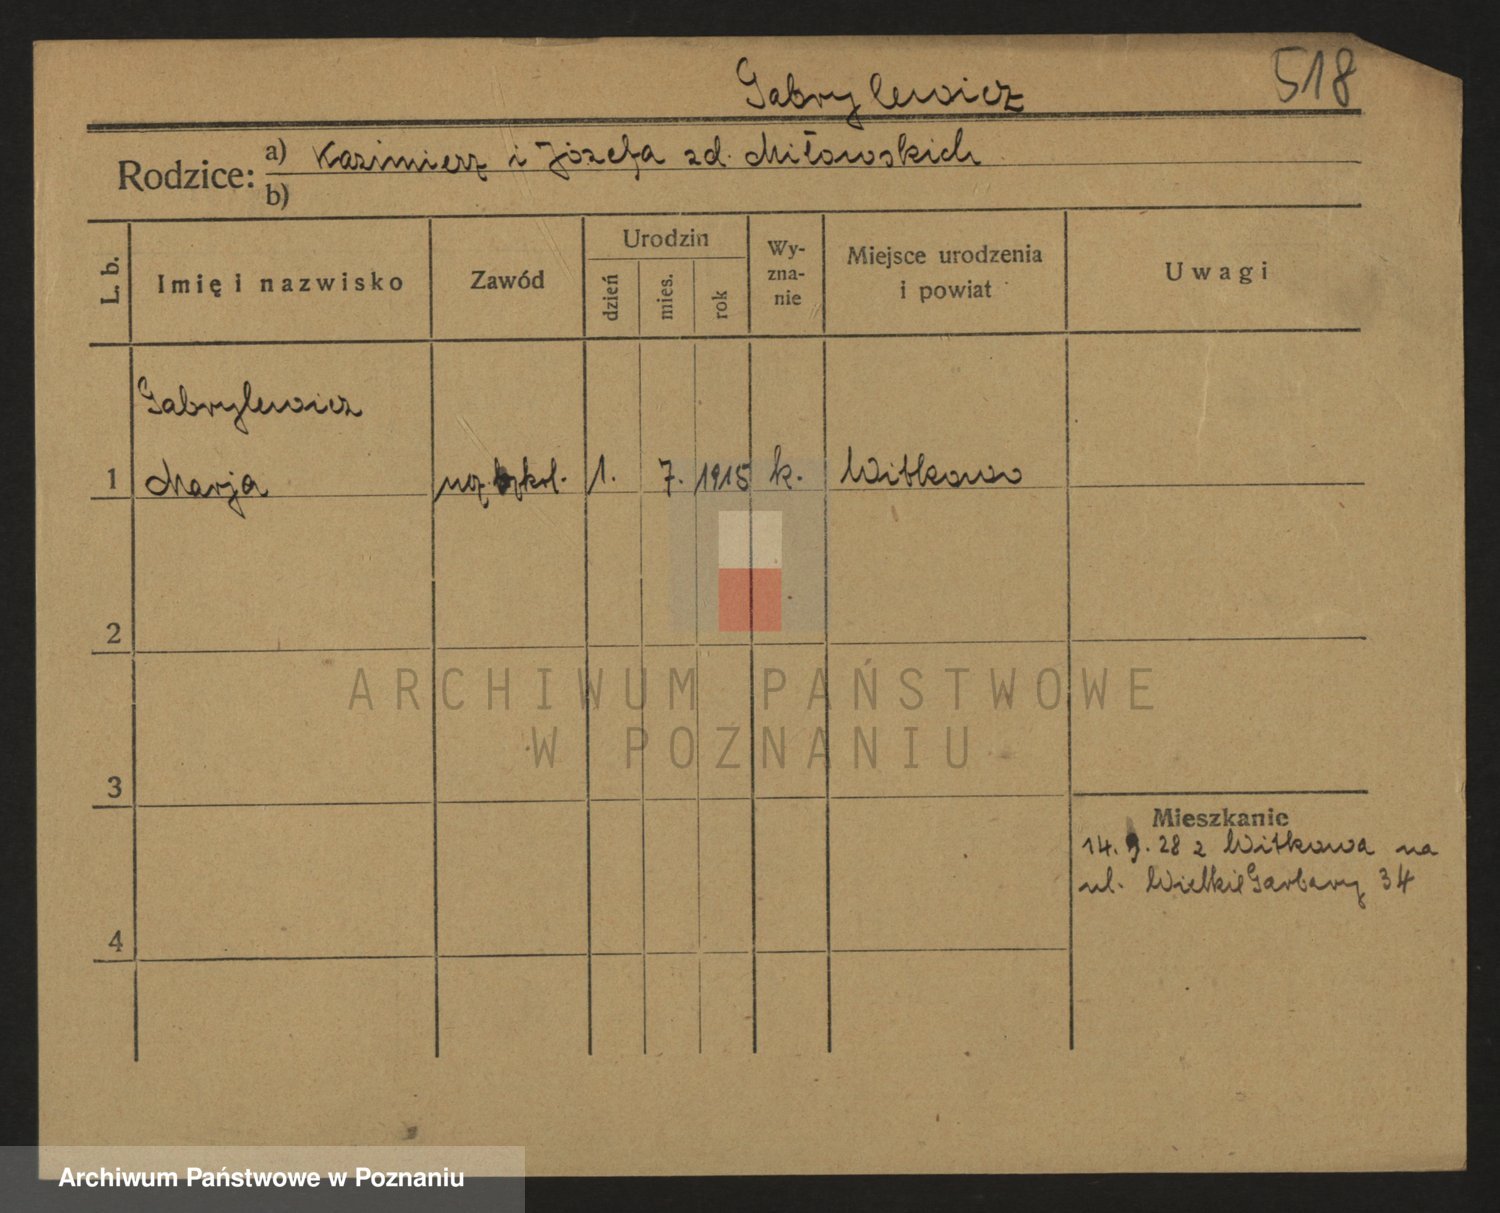 Gabrylewicz 518
Rodzice: a) Kazimierz i Józefa zd. Miłowskich
b)
L. b. Imię i nazwisko Zawód Urodzin dzień mies. rok Wyznanie Miejsce urodzenia i powiat Uwagi
Gabrylewicz
1 Marja ucz. szkol. 1. 7. 1915 k. Witkowo
2
3
Mieszkanie
14. 9. 28 z Witkowa na
ul. Wielkie Garbary 34
4
ARCHIWUM PAŃSTWOWE
W POZNANIU
Archiwum Państwowe w Poznaniu